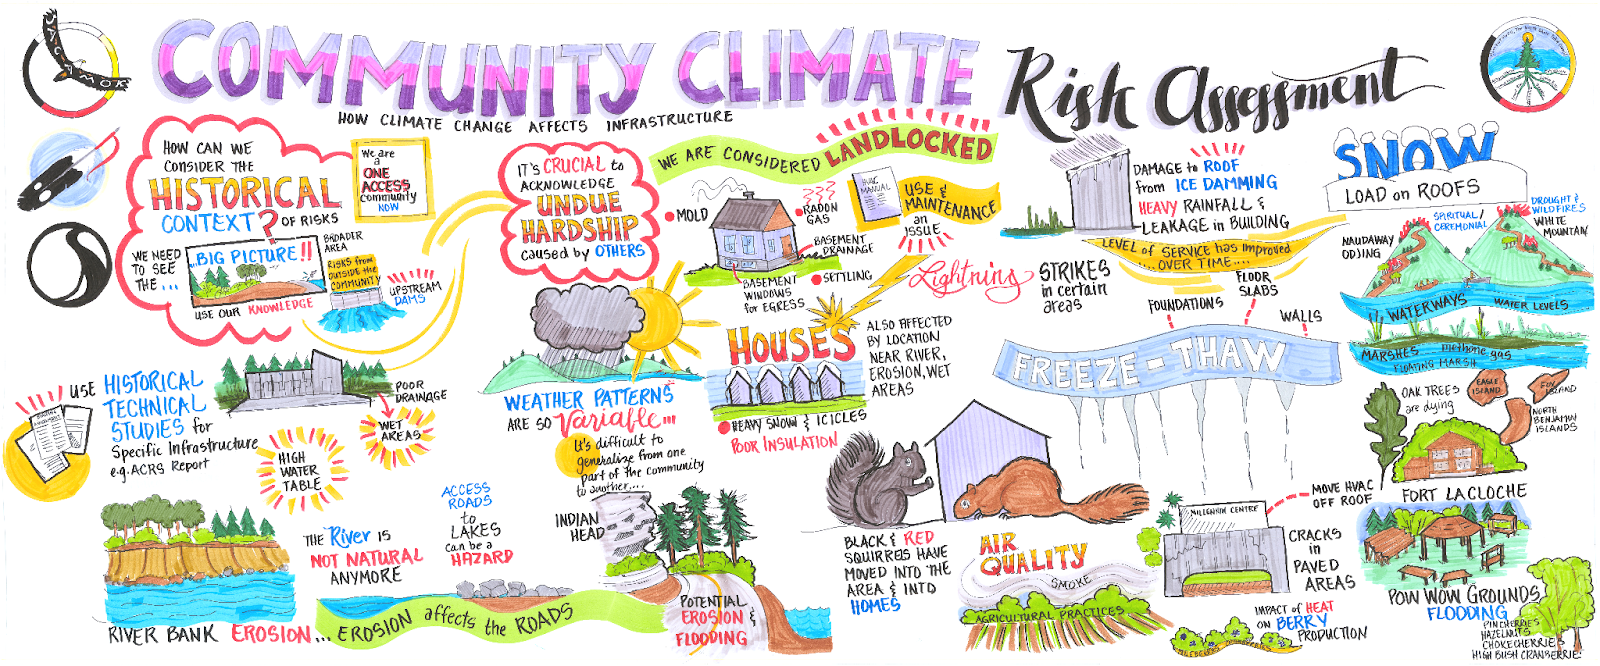 SAGAMOK
COMMUNITY CLIMATE
Risk Assessment
HOW CLIMATE CHANGE AFFECTS INFRASTRUCTURE
HOW CAN WE
CONSIDER THE
HISTORICAL
CONTEXT?
OF RISKS
WE NEED
TO SEE
THE...
BIG PICTURE!!
USE OUR KNOWLEDGE
BROADER
AREA
RISKS from
OUTSIDE the
COMMUNITY
UPSTREAM
DAMS
We are
a
ONE
ACCESS
community
NOW
IT'S CRUCIAL to
ACKNOWLEDGE
UNDUE
HARDSHIP
caused by OTHERS
WE ARE CONSIDERED LANDLOCKED
MOLD
RADON
GAS
BASEMENT
DRAINAGE
SETTLING
BASEMENT
WINDOWS
for EGRESS
HVAC
MANUAL
USE &
MAINTENANCE
an
ISSUE
Lightning STRIKES
in certain
areas
DAMAGE to ROOF
from ICE DAMMING
HEAVY RAINFALL &
LEAKAGE in BUILDING
LEVEL of SERVICE has improved
....OVER TIME....
SNOW
LOAD on ROOFS
NAUDAWAY
ODJING
SPIRITUAL/
CEREMONIAL
DROUGHT &
WILDFIRES
WHITE
MOUNTAIN
WATERWAYS
WATER LEVELS
MARSHES
methane gas
FLOATING MARSH
FOUNDATIONS
FLOOR
SLABS
WALLS
FREEZE-THAW
USE HISTORICAL
TECHNICAL
STUDIES for
Specific Infrastructure
e.g. ACRS Report
POOR
DRAINAGE
WET
AREAS
HIGH
WATER
TABLE
WEATHER PATTERNS
ARE SO Variable...
It's difficult to
generalize from one
part of the community
to another....
HOUSES
ALSO AFFECTED
BY LOCATION
NEAR RIVER,
EROSION, WET
AREAS
HEAVY SNOW & ICICLES
POOR INSULATION
OAK TREES
are dying
EAGLE
ISLAND
FOX
ISLAND
NORTH
BENJAMIN
ISLANDS
FORT LACLOCHE
RIVER BANK EROSION...
THE River IS
NOT NATURAL
ANYMORE
ACCESS
ROADS
to
LAKES
can be a
HAZARD
EROSION affects the ROADS
INDIAN
HEAD
POTENTIAL
EROSION &
FLOODING
BLACK & RED
SQUIRRELS HAVE
MOVED INTO THE
AREA & INTO
HOMES
AIR
QUALITY
SMOKE
AGRICULTURAL PRACTICES
MILLENIUM CENTRE
MOVE HVAC
OFF ROOF
CRACKS
in
PAVED
AREAS
IMPACT of HEAT
ON BERRY
PRODUCTION
POW WOW GROUNDS
FLOODING
PINCHERRIES
HAZELNUTS
CHOKECHERRIE
HIGH BUSH CRANBERRIE